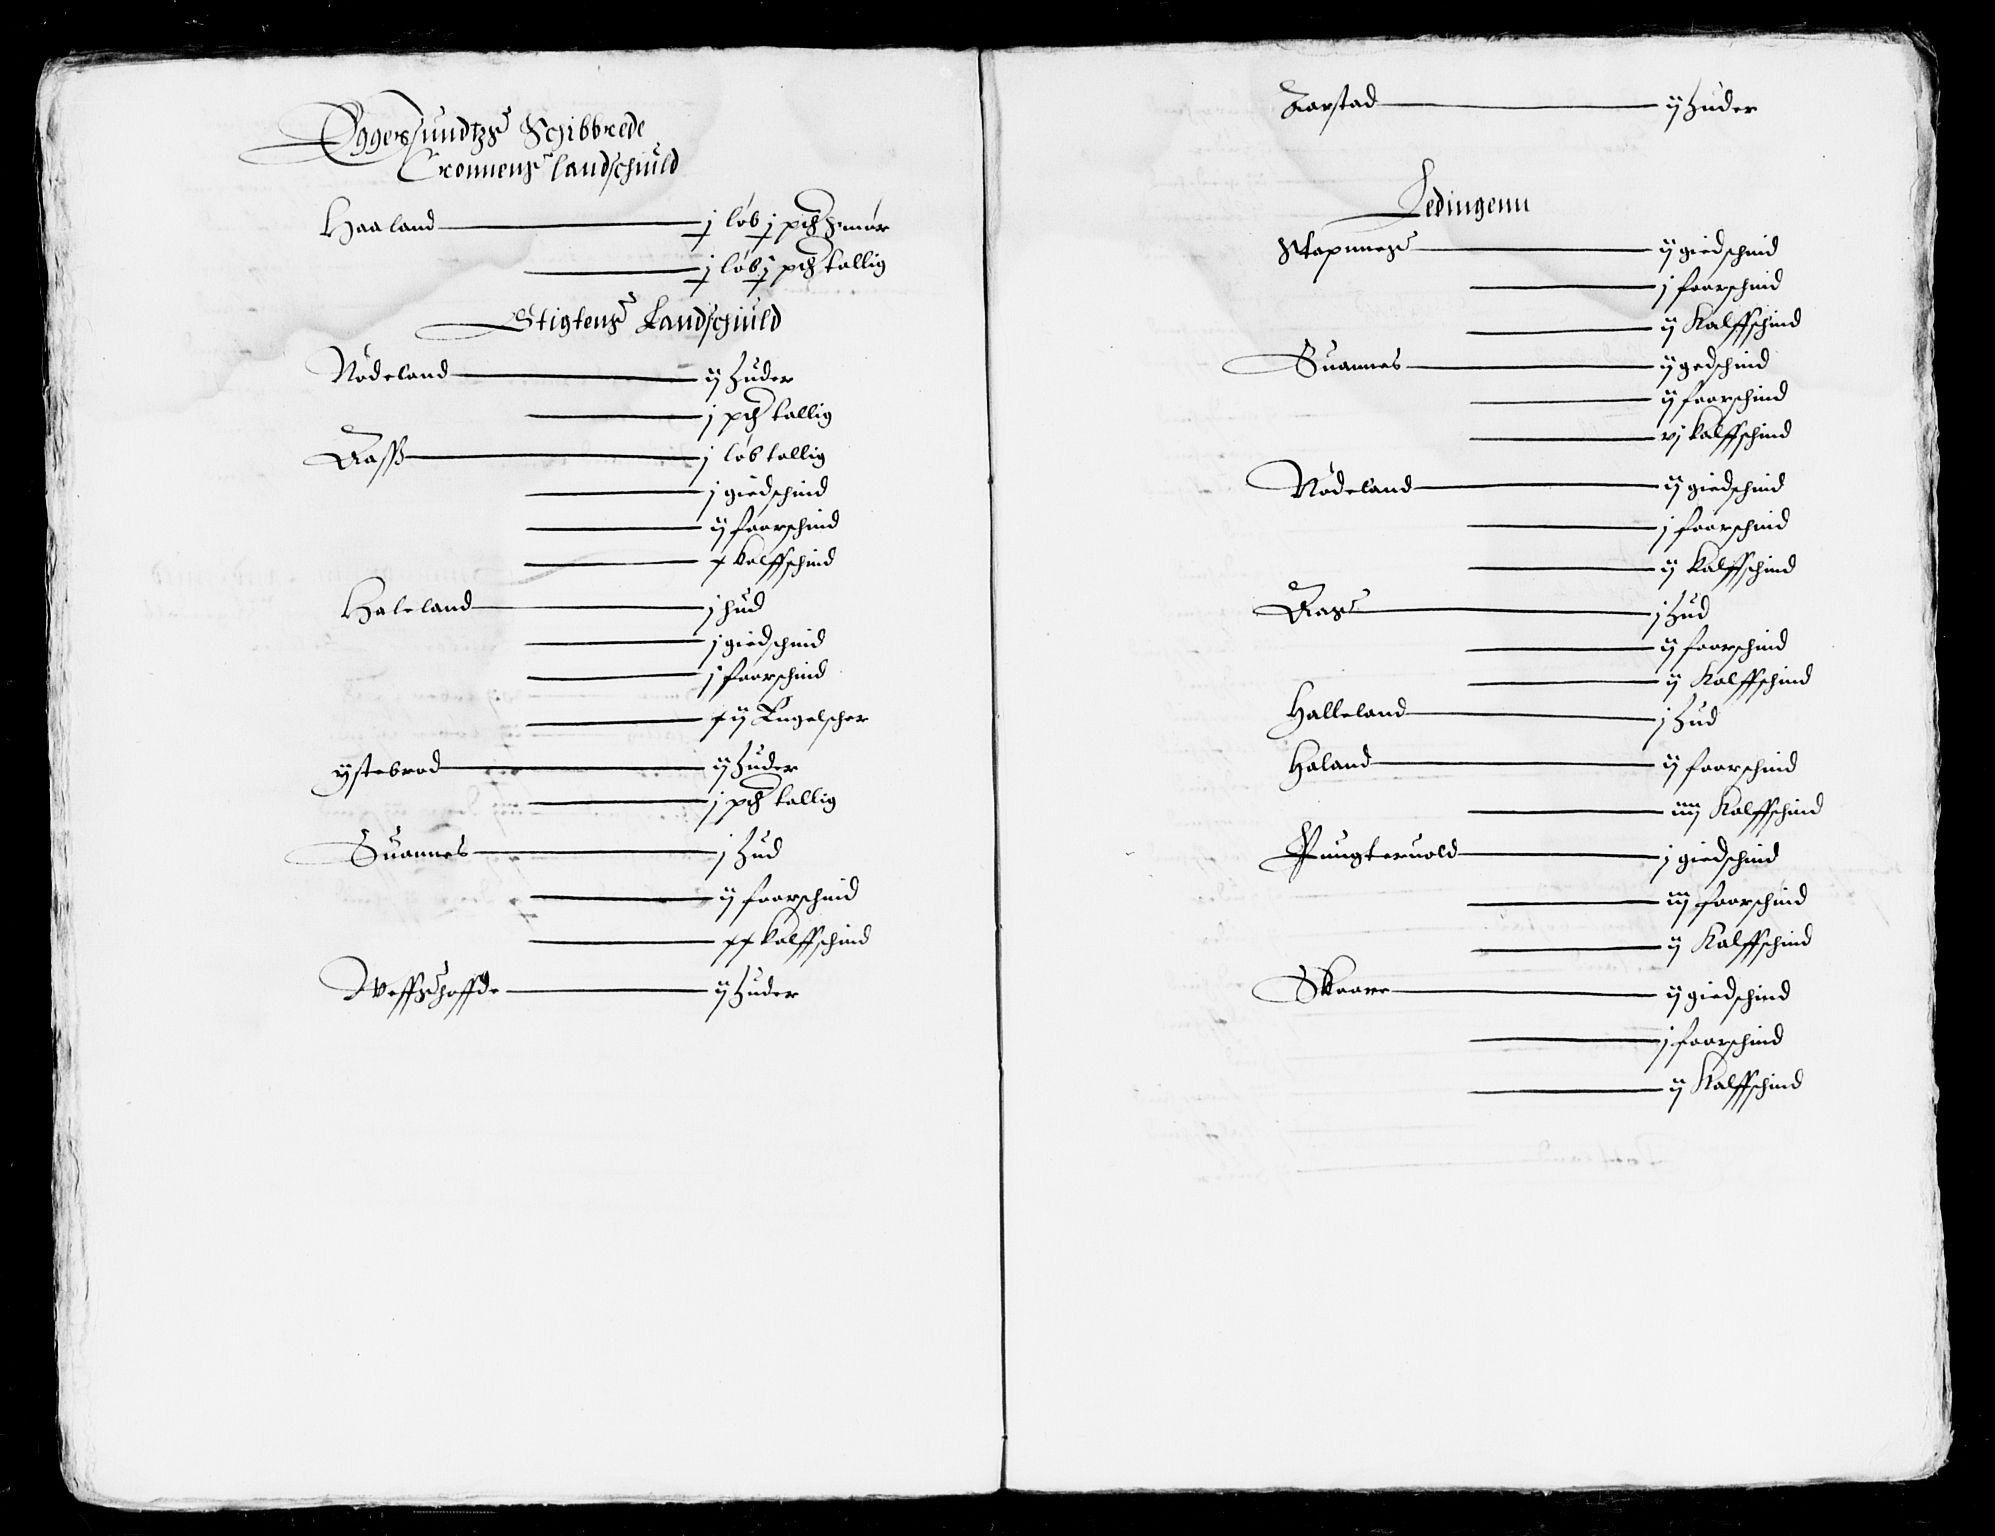 Eggersundtzs Schibbrede
Cronnens landschuld
Haaland j løb j pd smør
j løb j pd tallig
Stigtens Landschuld
Nødeland ij Huder
j pd tallig
Aass j løb tallig
j giedschind
ij faarschind
x kalffschind
Haleland j hud
j giedschind
j faarschind
xij Engelscher
ystebrød ij Huder
j pd tallig
Suannes j Hud
ij faarschind
xx kalffschind
ij Huder
Aarstad ij Huder
Ledingenn
Stapnnes ij giedschind
j faarschind
ij Kalffschind
Suannes ij gedschind
ij faarschind
vj kalffschind
Nødeland ij giedschind
j faarschind
ij kalffschind
Aass j Hud
ij faarschind
ij Kalffschind
Halleland j Hud
Haland ij faarschind
iiij Kalffschind
Pungteruold j giedschind
iij faarschind
ij Kalffschind
Skaare ij giedschind
j faarschind
ij Kalffschind